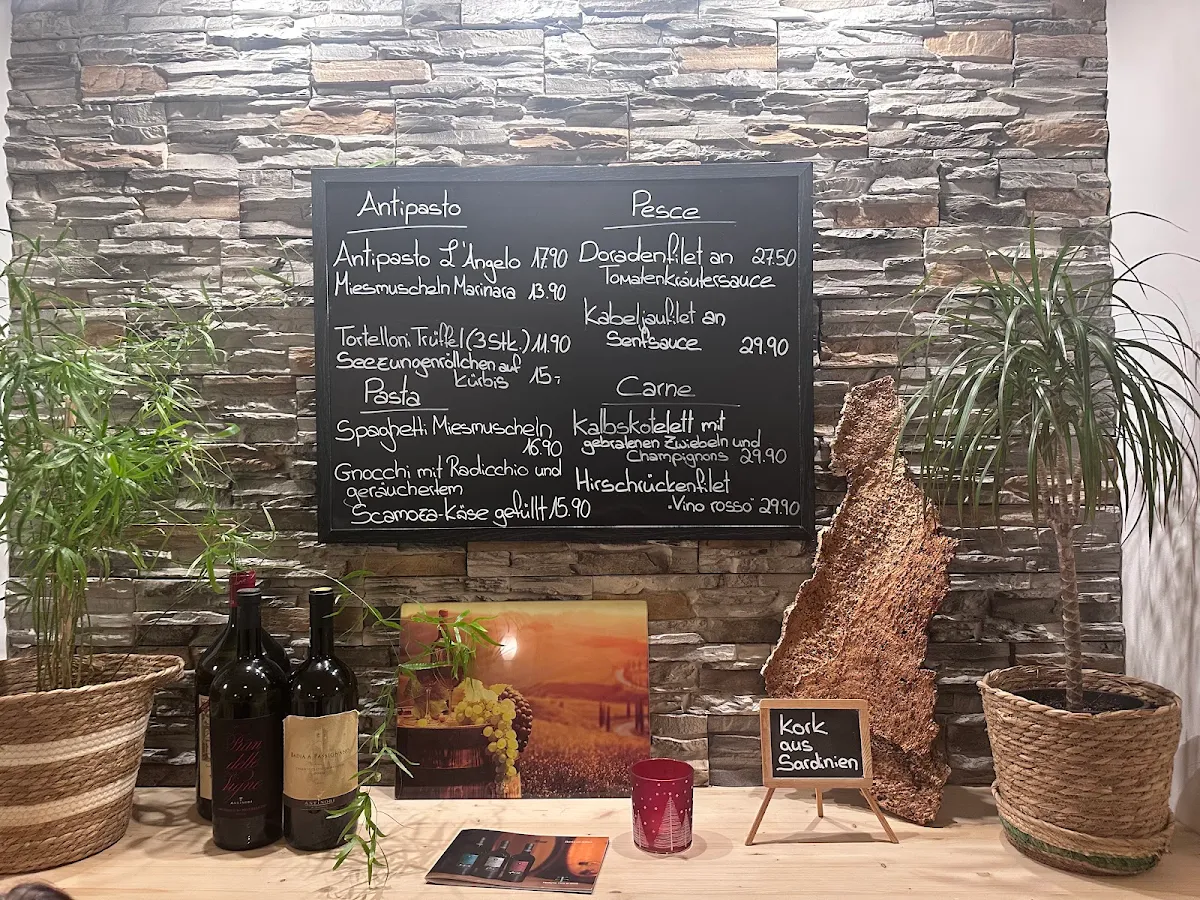 Antipasto
Antipasto L'Angelo 17.90
Miesmuscheln Marinara 13.90
Tortelloni Trüffel (3 Stk.) 11.90
Seezungenröllchen auf
Kürbis 15.-
Pasta
Spaghetti Miesmuscheln
16.90
Gnocchi mit Radicchio und
geräuchertem
Scamoza-Käse gefüllt 15.90
Pesce
Doradenfilet an 27.50
Tomatenkräutersauce
Kabeljaufilet an
Senfsauce 29.90
Carne
Kalbskotelett mit
gebratenen Zwiebeln und
Champignons 29.90
Hirschrückenfilet
"Vino rosso" 29.90
Pian
delle
Vigne
BADIA A PASSIGNANO
ANTINORI
Kork
aus
Sardinien